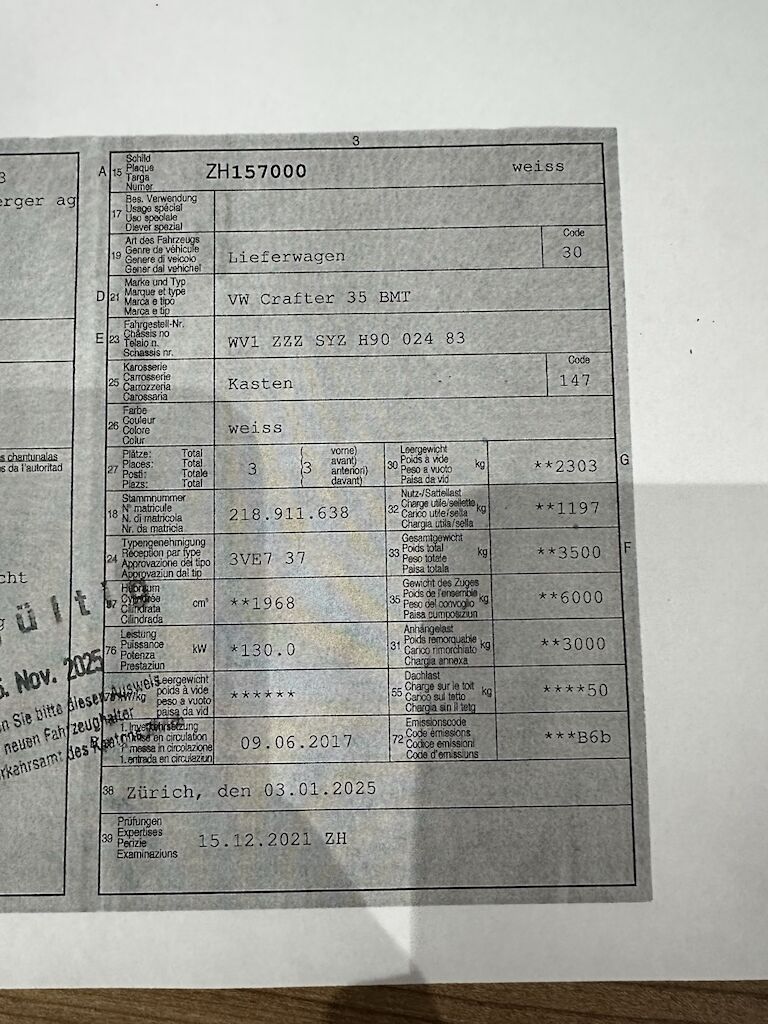 3
3
erger ag
A 15 Schild
Plaque
Targa
Numer
ZH157000 weiss
17 Bes. Verwendung
Usage spécial
Uso speciale
Diever spezial
19 Art des Fahrzeugs
Genre de véhicule
Genere di veicolo
Gener dal vehichel
Lieferwagen
Code
30
D 21 Marke und Typ
Marque et type
Marca e tipo
Marca e tip
VW Crafter 35 BMT
E 23 Fahrgestell-Nr.
Châssis no
Telaio n.
Schassis nr.
WV1 ZZZ SYZ H90 024 83
25 Karosserie
Carrosserie
Carrozzeria
Carossaria
Kasten
Code
147
26 Farbe
Couleur
Colore
Colur
weiss
27 Plätze: Total
Places: Total
Posti: Totale
Plazs: Total
3 (3 vorne)
( avant)
( anteriori)
( davant)
30 Leergewicht
Poids à vide
Peso a vuoto
Paisa da vid
kg **2303 G
18 Stammnummer
N° matricule
N. di matricola
Nr. da matricla
218.911.638
32 Nutz-/Sattellast
Charge utile/sellette
Carico utile/sella
Chargia utila/sella
kg **1197
24 Typengenehmigung
Réception par type
Approvazione del tipo
Approvaziun dal tip
3VE7 37
33 Gesamtgewicht
Poids total
Peso totale
Paisa totala
kg **3500 F
37 Hubraum
Cylindrée
Cilindrata
Cilindrada
cm³ **1968
35 Gewicht des Zuges
Poids de l'ensemble
Peso del convoglio
Paisa cumposiziun
kg **6000
76 Leistung
Puissance
Potenza
Prestaziun
kW *130.0
31 Anhängelast
Poids remorquable
Carico rimorchiato
Chargia annexa
kg **3000
Leergewicht
poids à vide
peso a vuoto
paisa da vid
******
55 Dachlast
Charge sur le toit
Carico sul tetto
Chargia sin il tetg
kg ****50
1. Inverkehrsetzung
1re mise en circulation
1a messa in circolazione
1. entrada en circulaziun
09.06.2017
72 Emissionscode
Code émissions
Codice emissioni
Code d'emissiuns
***B6b
38 Zürich, den 03.01.2025
39 Prüfungen
Expertises
Perizie
Examinaziuns
15.12.2021 ZH
s chantunalas
s da l'autoritad
cht
ültig
5. Nov. 2025
n Sie bitte diesen Ausweis
neuen Fahrzeughalter
rkehrsamt des Kantons